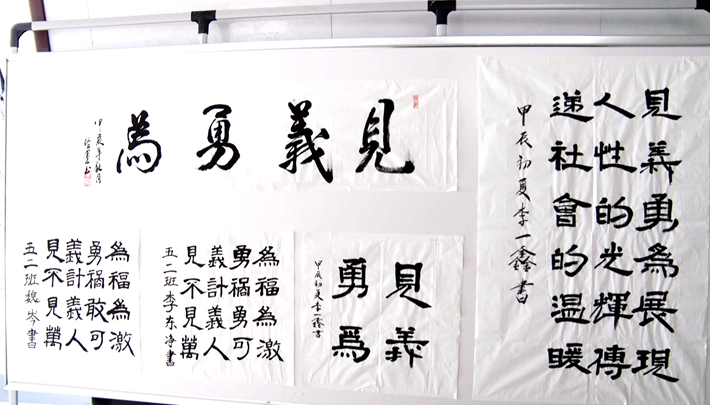 見義勇為
見義勇為展現
人性的光輝傳
递社會的温暖
甲辰初夏李一鑫書
見義勇為
不計禍福
見義敢為
萬人可激
五二班魏岑書
見義勇為
不計禍福
見義勇為
萬人可激
五二班李东净書
見義
勇爲
甲辰初夏李一鑫書